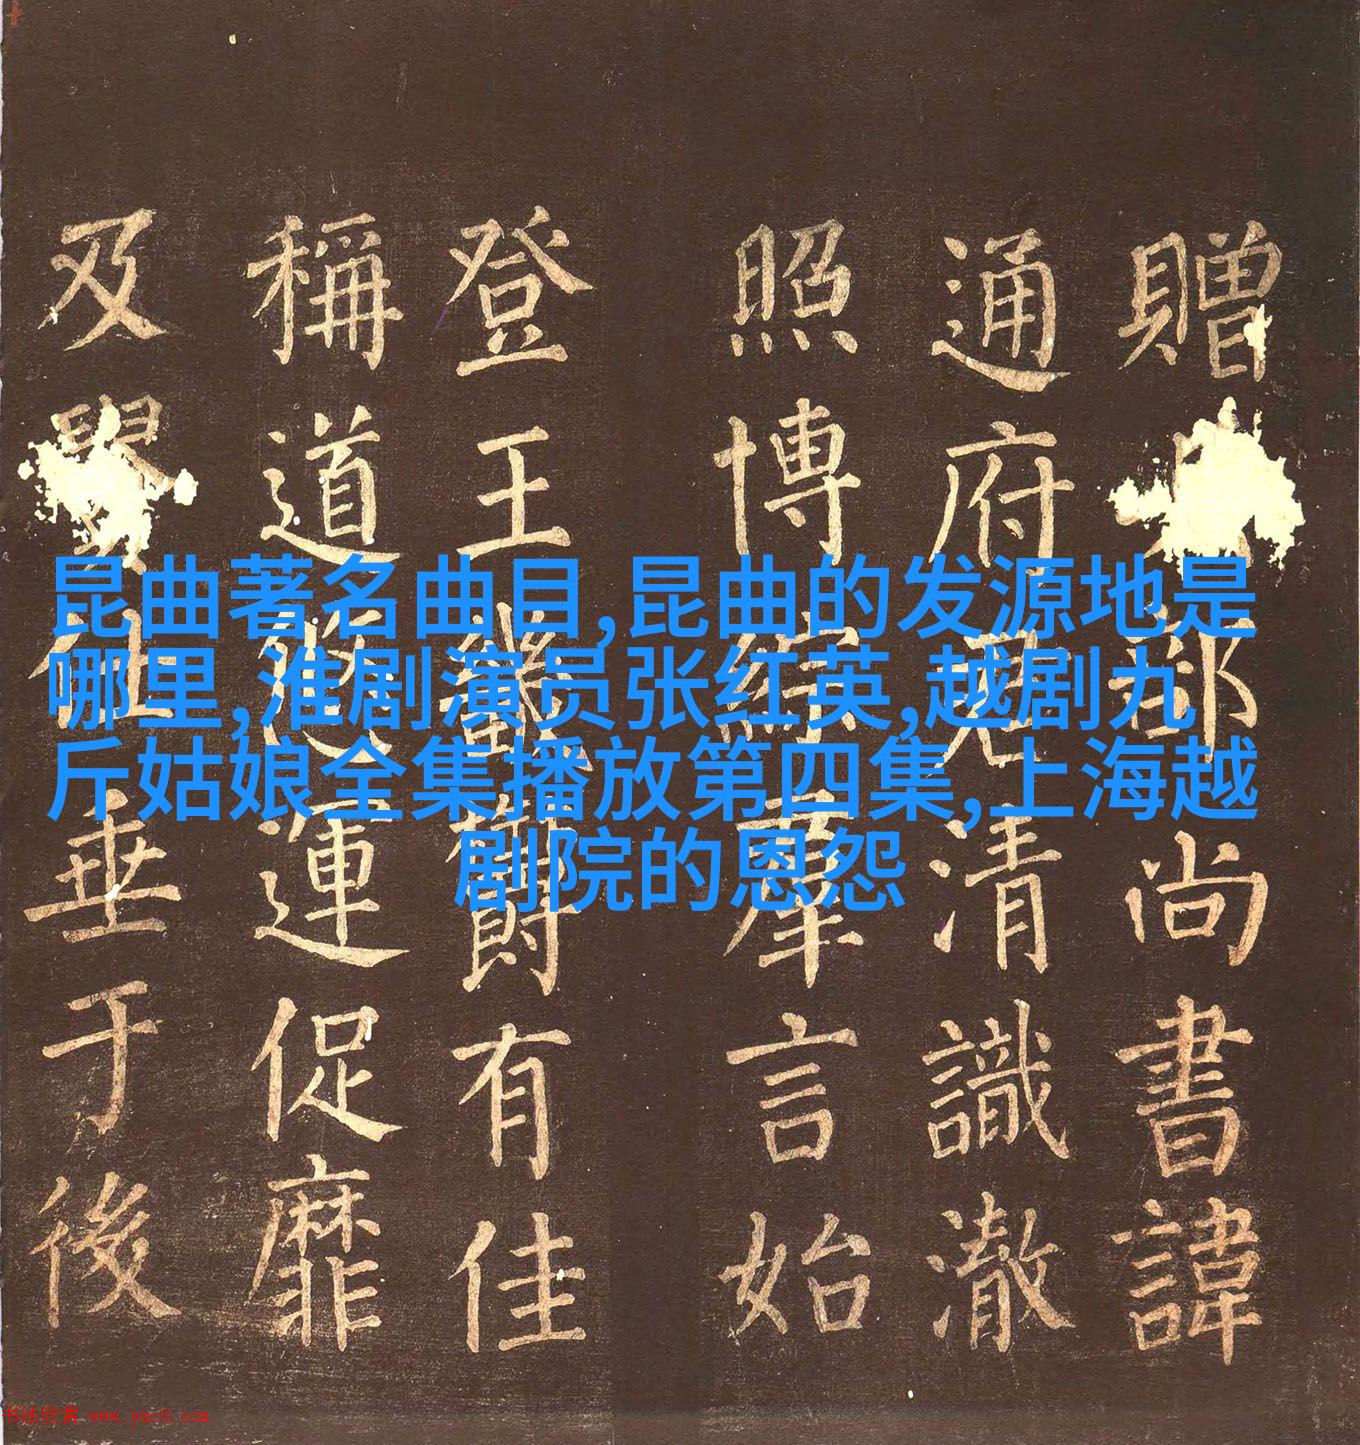 贈部尚書諱
通府清識澈
照博綜羣言始
登王畿爵有佳
稱道悠運促靡
及垂于後
昆曲著名曲目,昆曲的发源地是
哪里,淮剧演员张红英,越剧九
斤姑娘全集播放第四集,上海越
剧院的恩怨
书法欣赏 www.yac8.com